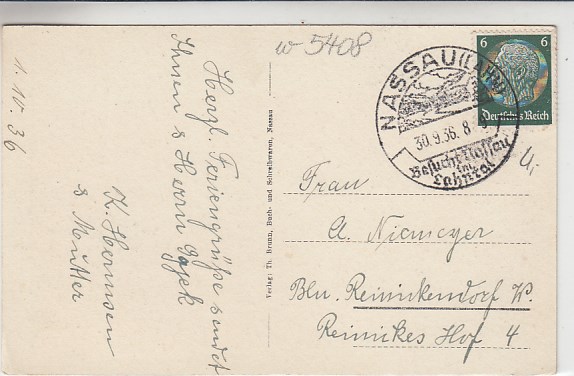 w-5408
1. IV. 36
Herzl. Feriengrüße sendet
Ihnen & Herrn
K. Hermsen
& Mutter
Verlag: Th. Brunn, Buch- und Schreibwaren, Nassau
NASSAU (LAHN)
30.9.36. 8
Besucht Nassau
im
Lahntal
6 6
Deutsches Reich
Frau
A. Niemeyer
Bln. Reinickendorf W.
Reinikes Hof 4